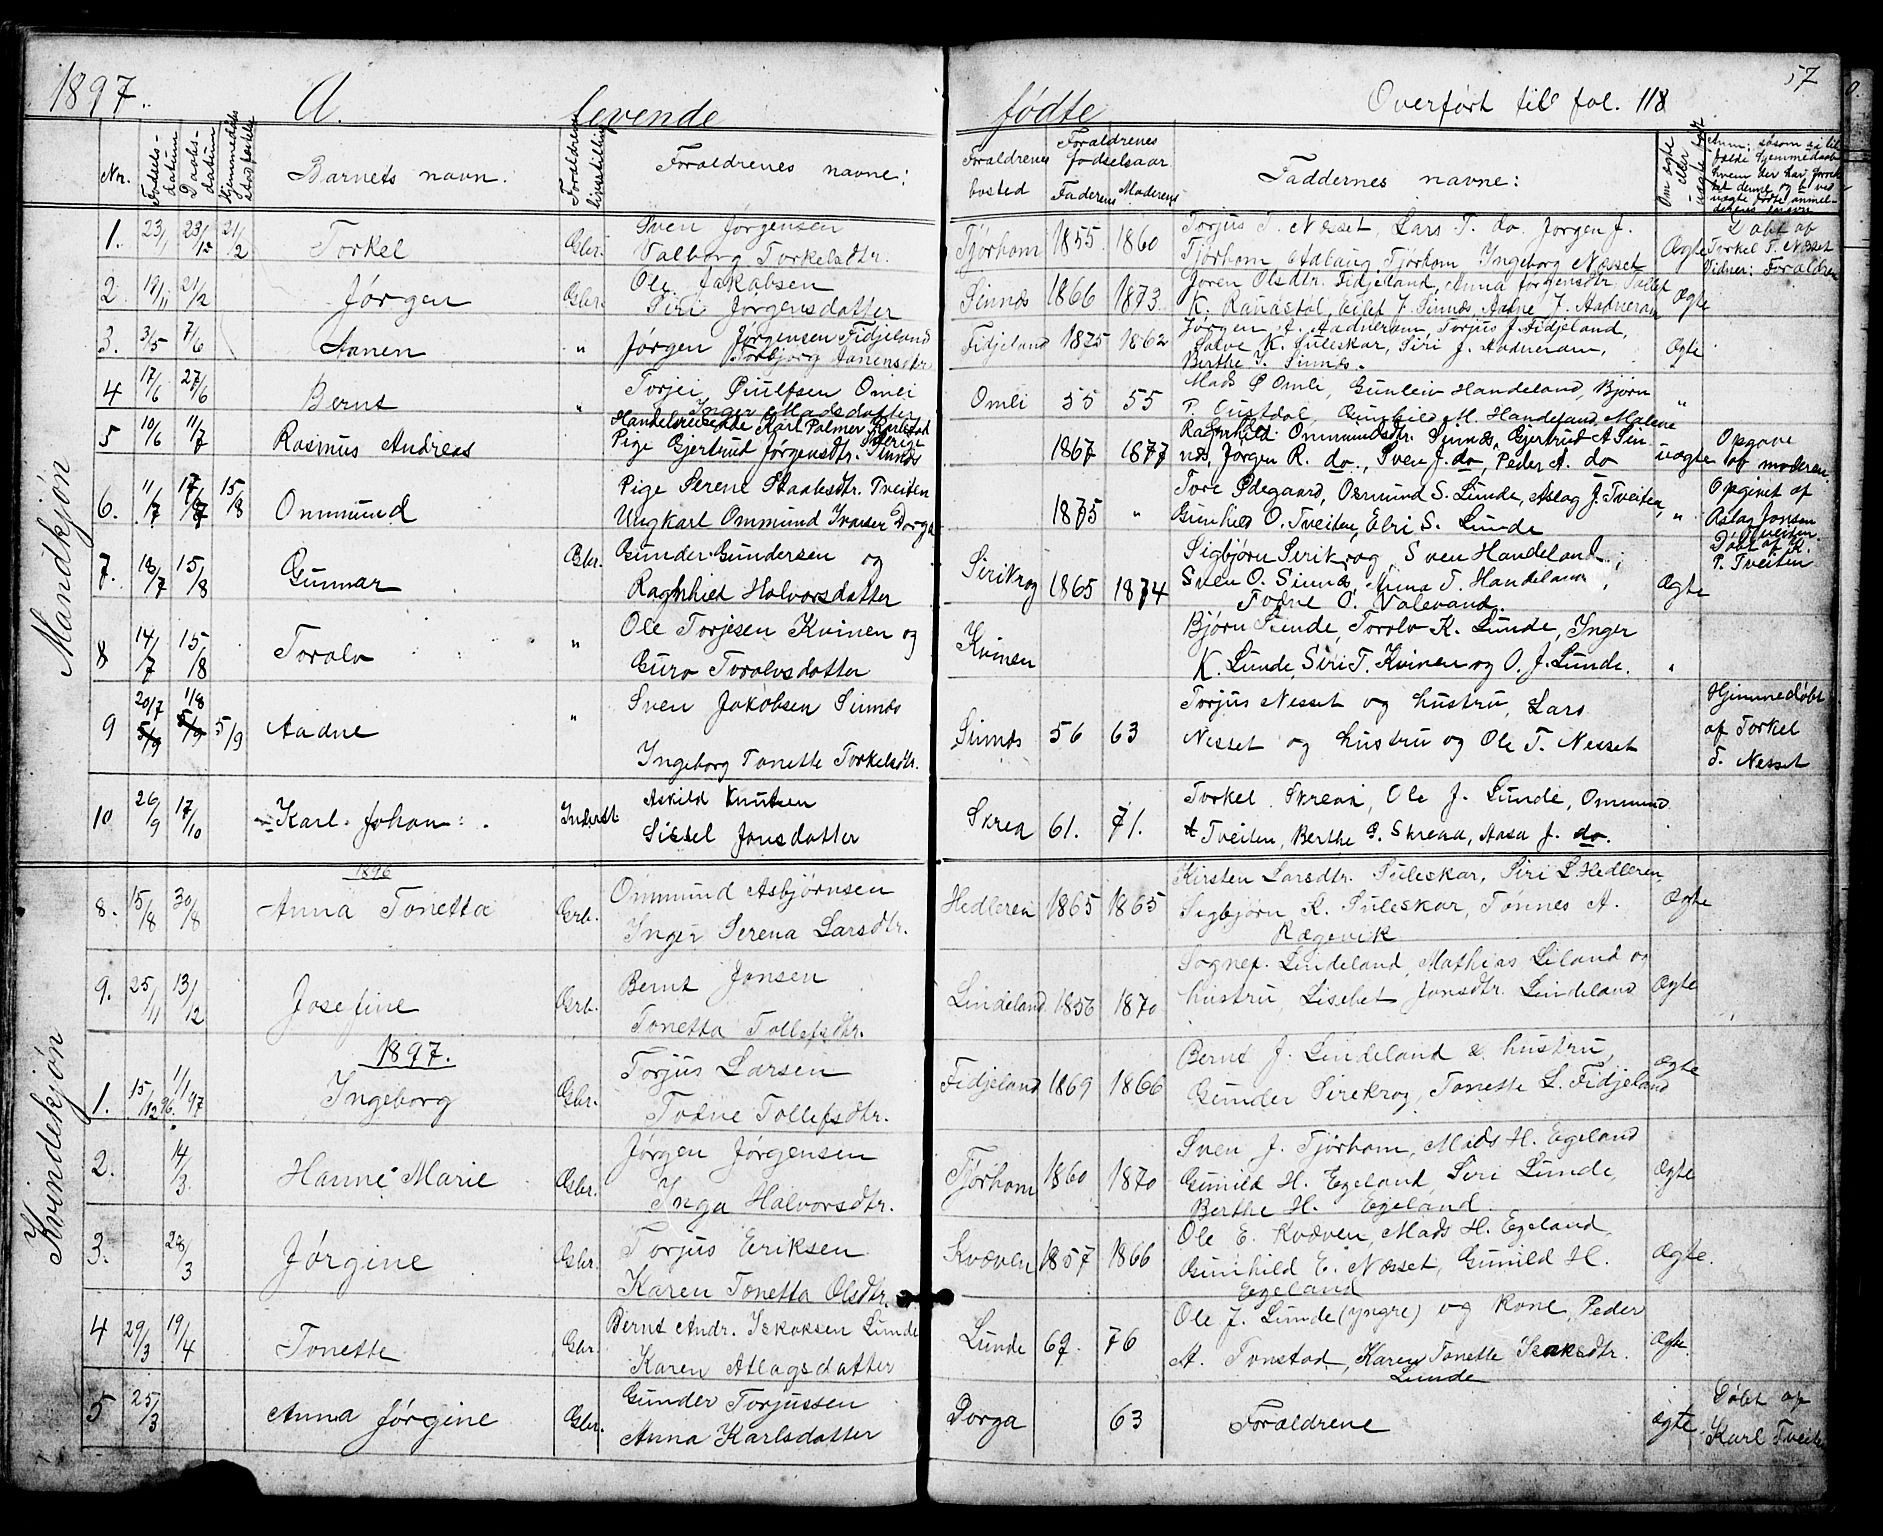 1897. A. levende fødte Overført til fol. 118 57
Nr. Fødsels-datum Daabs-datum Barnets navn. Forældrenes livsstilling Forældrenes navne: Forældrenes bosted Forældrenes fødselsaar Faderens Moderens Faddernes navne: Om ægte eller uægte født
Mandkjøn
1. 23/1 23/12 21/2 Torkel Gbr. Sven Jørgensen
Valborg Torkelsdtr. Tjørhom 1855 1860 Torjus T. Nesset, Lars T. do, Jørgen J.
Tjørhom, Adlaug Tjørhom Ingeborg Nesset Ægte Torkel T. Nesset
Vidner: Forældren
2 21/2 Jørgen Gbr. Ole Jakobsen
Siri Jørgensdatter Sinnes 1866 1873. Joren Olsdtr. Fidjeland, Anna Jørgensdtr.
Ægte
3. 3/5 7/6 Aanen " Jørgen Jørgensen Fidjeland
Torbjørg Aanensdtr Fidjeland 1825 1862 Jørgen A. Aadneram, Torjus J. Fidjeland,
Salve K. Suleskar, Siri J. Aadneram,
Berthe J. Sinnes. Ægte
4 17/6 27/6 Bernt " Torjei Øiulfsen Omli
Inger Madsdatter Omli 55 55 Mads P Omli, Gunleiv Handeland, Bjørn
P. Gustdal, Gunhild M. Handeland, Malene "
5 10/6 11/7 Rasmus Andreas Handelsreisende Karl Palmer Karlstad Sverige
Pige Gjertrud Jørgensdtr. Sinnes 1867 1877 Ragnhild Ommundsdtr. Sinnes, Gjertrud A Sin
nes, Jørgen R. do., Sven J. do, Peder A. do uægte Opgave
af moderen.
6. 11/7 15/8 Ommund Pige Serene Tveiten
Ungkarl Ommund Ivarsen Dorga 1875 " Tore Ødegaard, Osmund S. Lunde, Aslag J. Tveiten,
Gunhild O. Tveiten, Elri S. Lunde " Opgivet af
Aslag Jonsen
Tveiten.
7. 18/7 15/8 Gunnar Gbr. Gunder Gundersen og
Ragnhild Halvorsdatter Serikrog 1865 1874 Sigbjørn Serikrog, Sven Handeland,
Sven O. Sinnes, Anna T. Handeland,
Todne O. Valevand. Ægte Døbt af K.
P. Tveiten
8 14/7 15/8 Toralv " Ole Torjesen Kvinen og
Guro Toralvsdatter Kvinen Bjørn Lunde, Toralv K. Lunde, Inger
K. Lunde, Siri T. Kvinen og O. J. Lunde. "
9 20/7 5/9 1/8 5/9 5/9 Aadne " Sven Jakobsen Sinnes
Ingeborg Tonette Torkelsdtr. Sinnes 56 63 Torjus Nesset og hustru, Lars
Nesset og hustru og Ole T. Nesset Hjemmedøbt
af Torkel
T. Nesset
10 26/9 17/10 Karl Johan Inderst Askild Knutsen
Sissel Jonsdatter Skrea 61. 71. Torkel Skreaa, Ole J. Lunde, Ommund
A Tveiten, Berthe G. Skreaa, Aasa J. do.
Kvindekjøn
1896
8. 15/8 30/8 Anna Tonetta Gbr. Ommund Asbjørnsen
Inger Serena Larsdtr. Hedleren 1865 1865 Kirsten Larsdtr. Suleskar, Siri L. Hedleren,
Sigbjørn K. Suleskar, Tønnes A.
Rægevik Ægte
9. 25/11 13/12 Josefine Gbr. Bernt Jonsen
Tonetta Tollefsdtr. Lindeland 1856 1870 Lindeland, Mathias Liland og
hustru, Lisebet Jonsdtr. Lindeland Ægte
1897.
1. 15/12 96. 1/1 97 Ingeborg Gbr. Torjus Larsen
Todne Tollefsdtr. Fidjeland 1869 1866 Bernt J. Lindeland & hustru,
Gunder Sirekrog, Tonette L. Fidjeland Ægte
2. 14/3. Hanne Marie Gbr. Jørgen Jørgensen
Inga Halvorsdtr. Tjørhom 1860 1870 Sven J. Tjørhom, Mads H. Egeland
Gunild H. Egeland, Siri Lunde,
Berthe H. Egeland. Ægte
3. 28/3 Jørgine Gbr. Torjus Eriksen
Karen Tonetta Olsdtr. Kvæven 1857 1866 Ole E. Kvæven, Mads H. Egeland,
Gunhild E. Næsset, Gunild H.
Egeland Ægte.
4 29/3 19/4 Tonette Gbr. Bernt Andr. Isaksen Lunde
Karen Atlagsdatter Lunde 67. 76 Ole J. Lunde (yngre) og kone, Peder
A. Tonstad, Karen Tonette Isaksdtr.
Lunde Ægte.
5 25/3 Anna Jørgine Gbr. Gunder Torjussen
Anna Karlsdatter Dorga 63 Forældrene ægte. Døbt af
Karl Tveiten